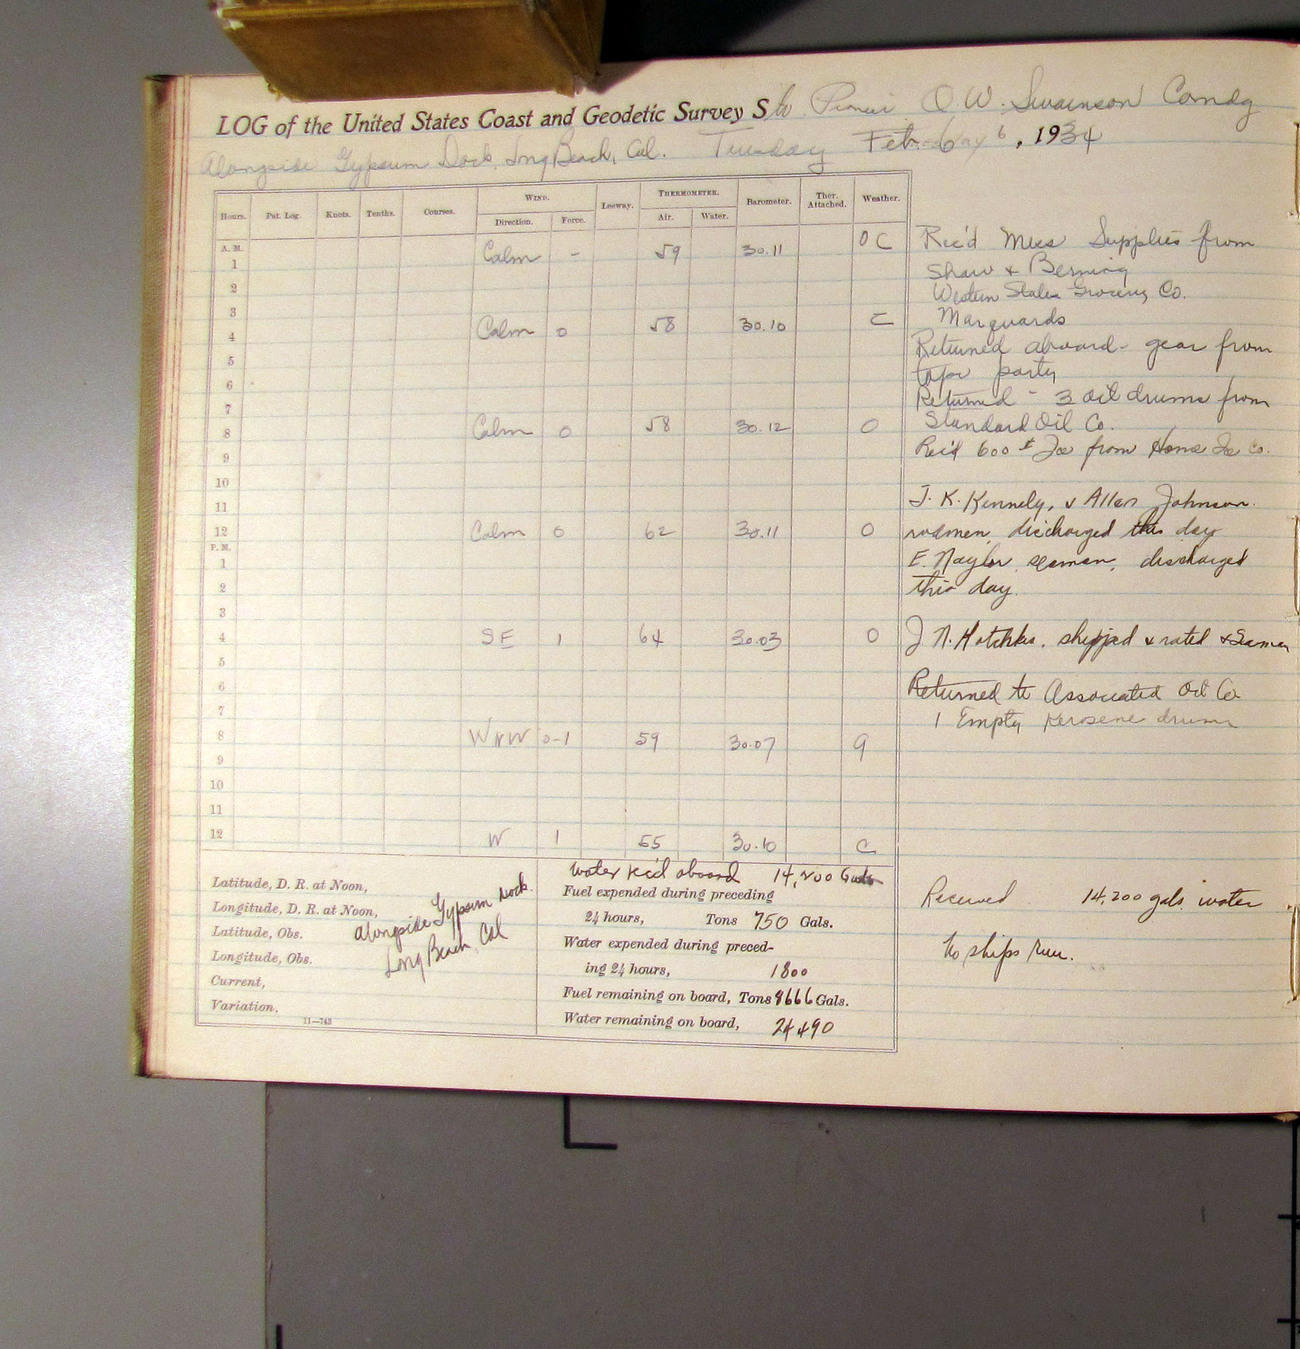 LOG of the United States Coast and Geodetic Survey S O.W. Swainson Comdg
Alongside Gypsum Dock, Long Beach, Cal. Tuesday Feb. 6, 1934
Hours. Pat. Log. Knots. Tenths. Courses. WIND. Leeway. THERMOMETER. Barometer. Ther. Attached. Weather.
Direction. Force. Air. Water.
A. M. Calm - 59 30.11 O C
1
2
3
4 Calm 0 58 30.10 C
5
6
7
8 Calm 0 58 30.12 O
9
10
11
12 Calm 0 62 30.11 O
P. M.
1
2
3
4 SE 1 64 30.03 O
5
6
7
8 WNW 0-1 59 30.07
9
10
11
12 W 1 55 30.10 C
Rec'd Mess Supplies from
Shaw & Berning
Western States Grocery Co.
Marquards
Returned aboard - gear from
tape party
Returned - 3 oil drums from
Standard Oil Co.
Rec'd 600 # Ice from Home Ice Co.
J. K. Kennely, & Allen Johnson
rodmen, discharged this day
E. Naylor seaman, discharged
this day.
J N. Hotchkis, shipped & rated Seaman
Returned to Associated Oil Co
1 Empty Kerosene drum
Received 14,200 gals water
No ships run.
Latitude, D. R. at Noon,
Longitude, D. R. at Noon,
Latitude, Obs.
Longitude, Obs.
Current,
Variation,
11—743
alongside Gypsum Dock
Long Beach, Cal
Water rec'd aboard 14,200 Gals
Fuel expended during preceding
24 hours, Tons 750 Gals.
Water expended during preced-
ing 24 hours, 1800
Fuel remaining on board, Tons 8666 Gals.
Water remaining on board, 24490